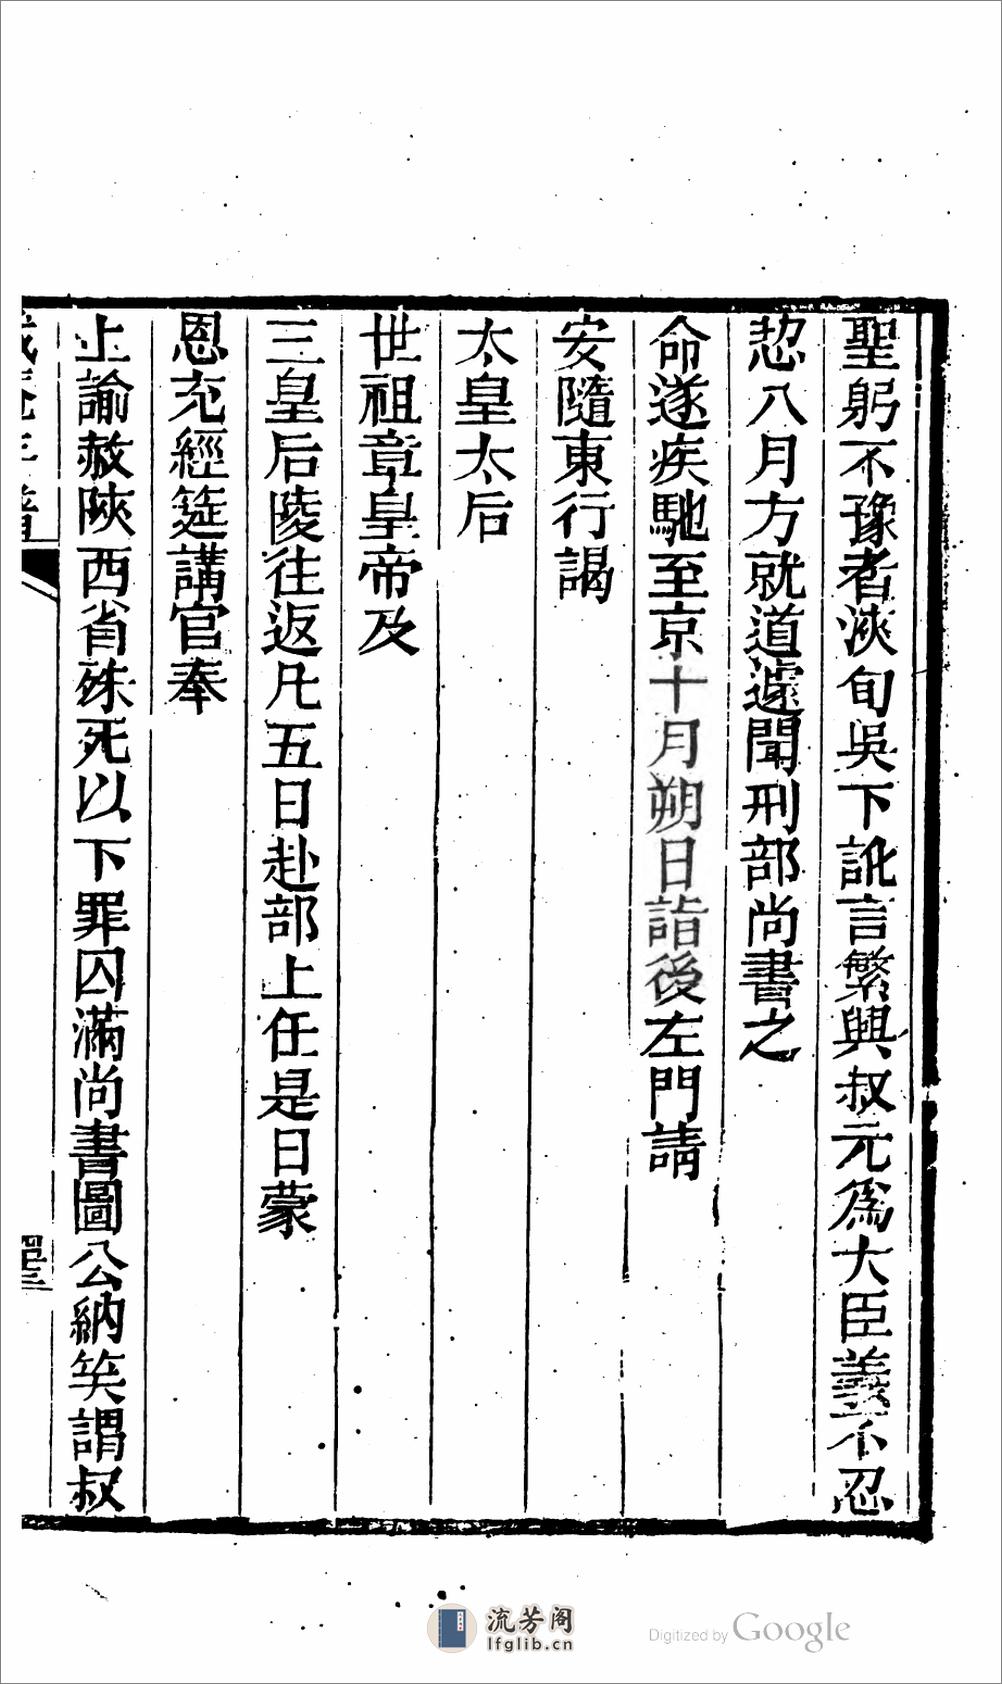 聖躬不豫者浹旬吳下訛言繁興叔元爲大臣義不忍
恝八月方就道遽聞刑部尚書之
命遂疾馳至京十月朔日詣後左門請
安隨東行謁
太皇太后
世祖章皇帝及
三皇后陵往返凡五日赴部上任是日蒙
恩充經筵講官奉
上諭赦陝西省殊死以下罪囚滿尚書圖公納笑謂叔
流芳阁
lfglib.cn
Digitized by Google